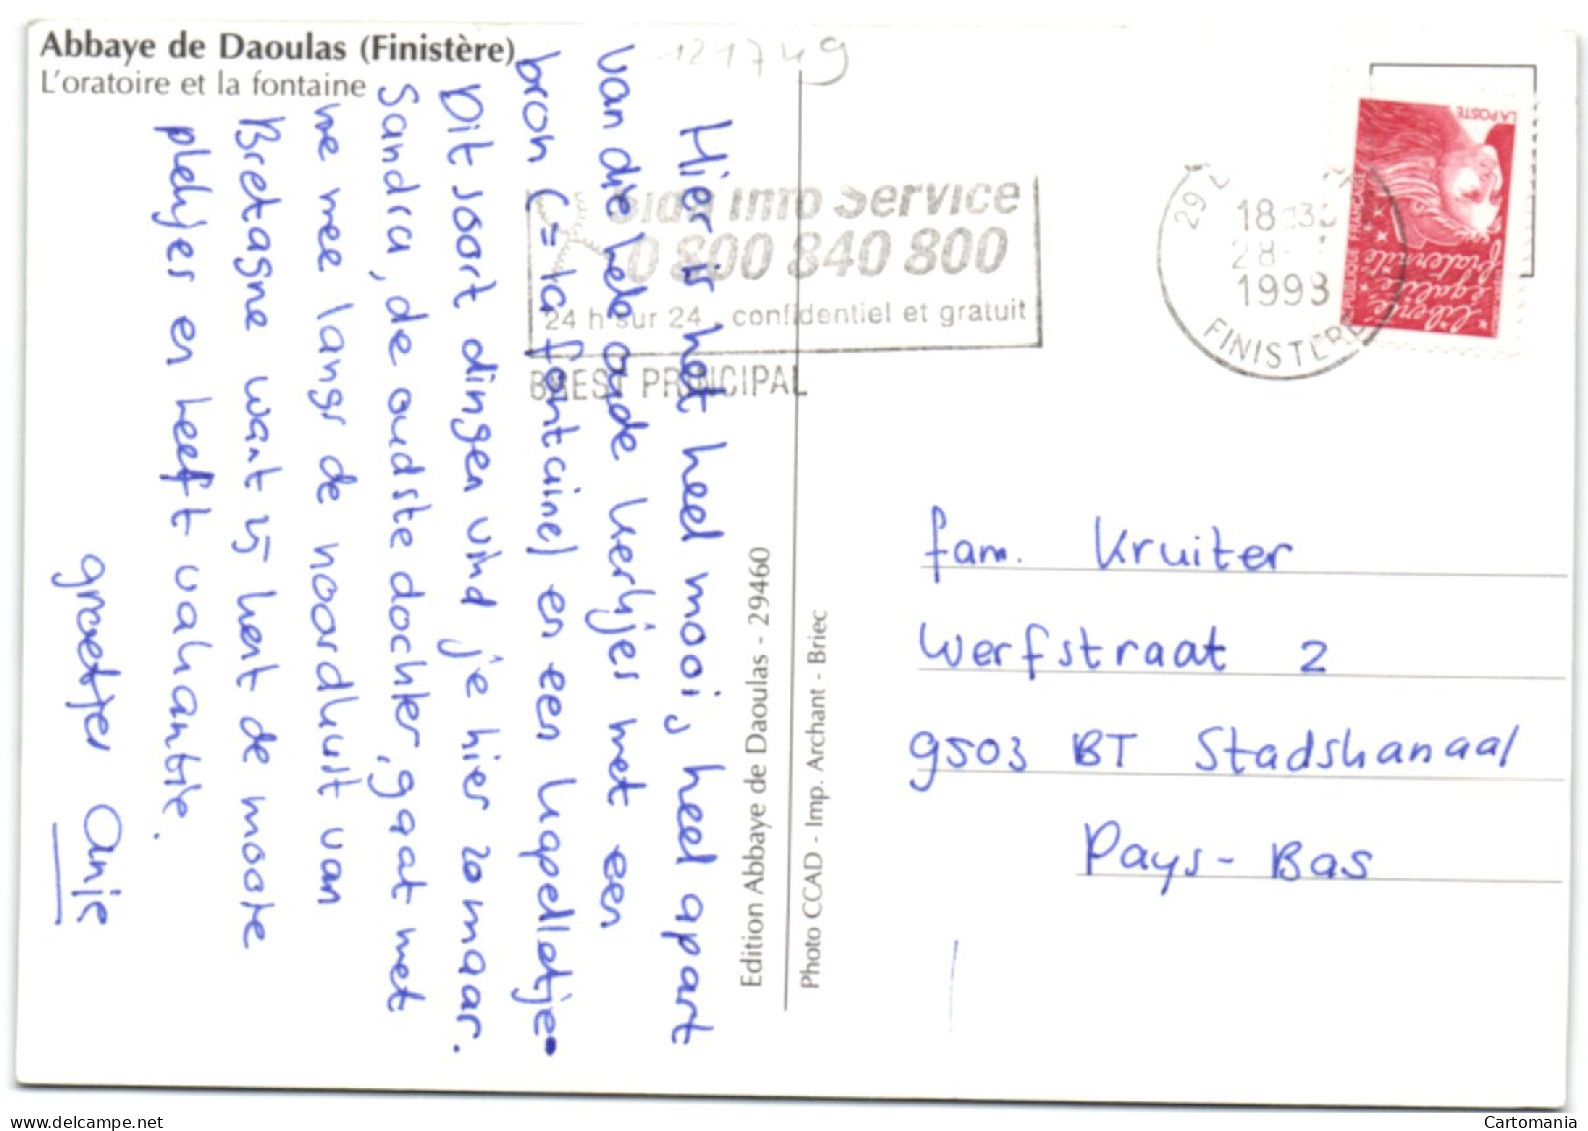 Abbaye de Daoulas (Finistère)
L'oratoire et la fontaine
121749
Hier is het heel mooi, heel apart
van die hele oude kerkjes met een
bron (= la fontaine) en een kapelletje
Dit soort dingen vind je hier zomaar.
Sandra, de oudste dochter, gaat met
me mee langs de noordkust van
Bretagne want zij kent de mooie
plekjes en heeft vakantie.
groetjes Anje
Edition Abbaye de Daoulas - 29460
Photo CCAD - Imp. Archant - Briec
Sida Info Service
0 800 840 800
24 h sur 24, confidentiel et gratuit
BREST PRINCIPAL
29
18
28
1998
FINISTERE
LA POSTE
REPUBLIQUE FRANÇAISE
liberté
égalité
fraternité
fam. Kruiter
Werfstraat 2
9503 BT Stadskanaal
Pays-Bas
Cartomania